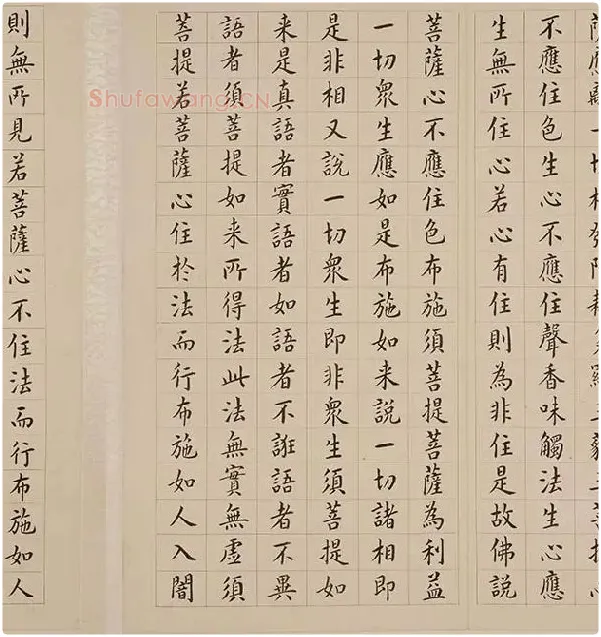 不應住色生心不應住聲香味觸法生心應
生無所住心若心有住則為非住是故佛說
菩薩心不應住色布施須菩提菩薩為利益
一切衆生應如是布施如来說一切諸相即
是非相又說一切衆生即非衆生須菩提如
来是真語者實語者如語者不誑語者不異
語者須菩提如来所得法此法無實無虛須
菩提若菩薩心住於法而行布施如人入闇
則無所見若菩薩心不住法而行布施如人
Shufawang.CN